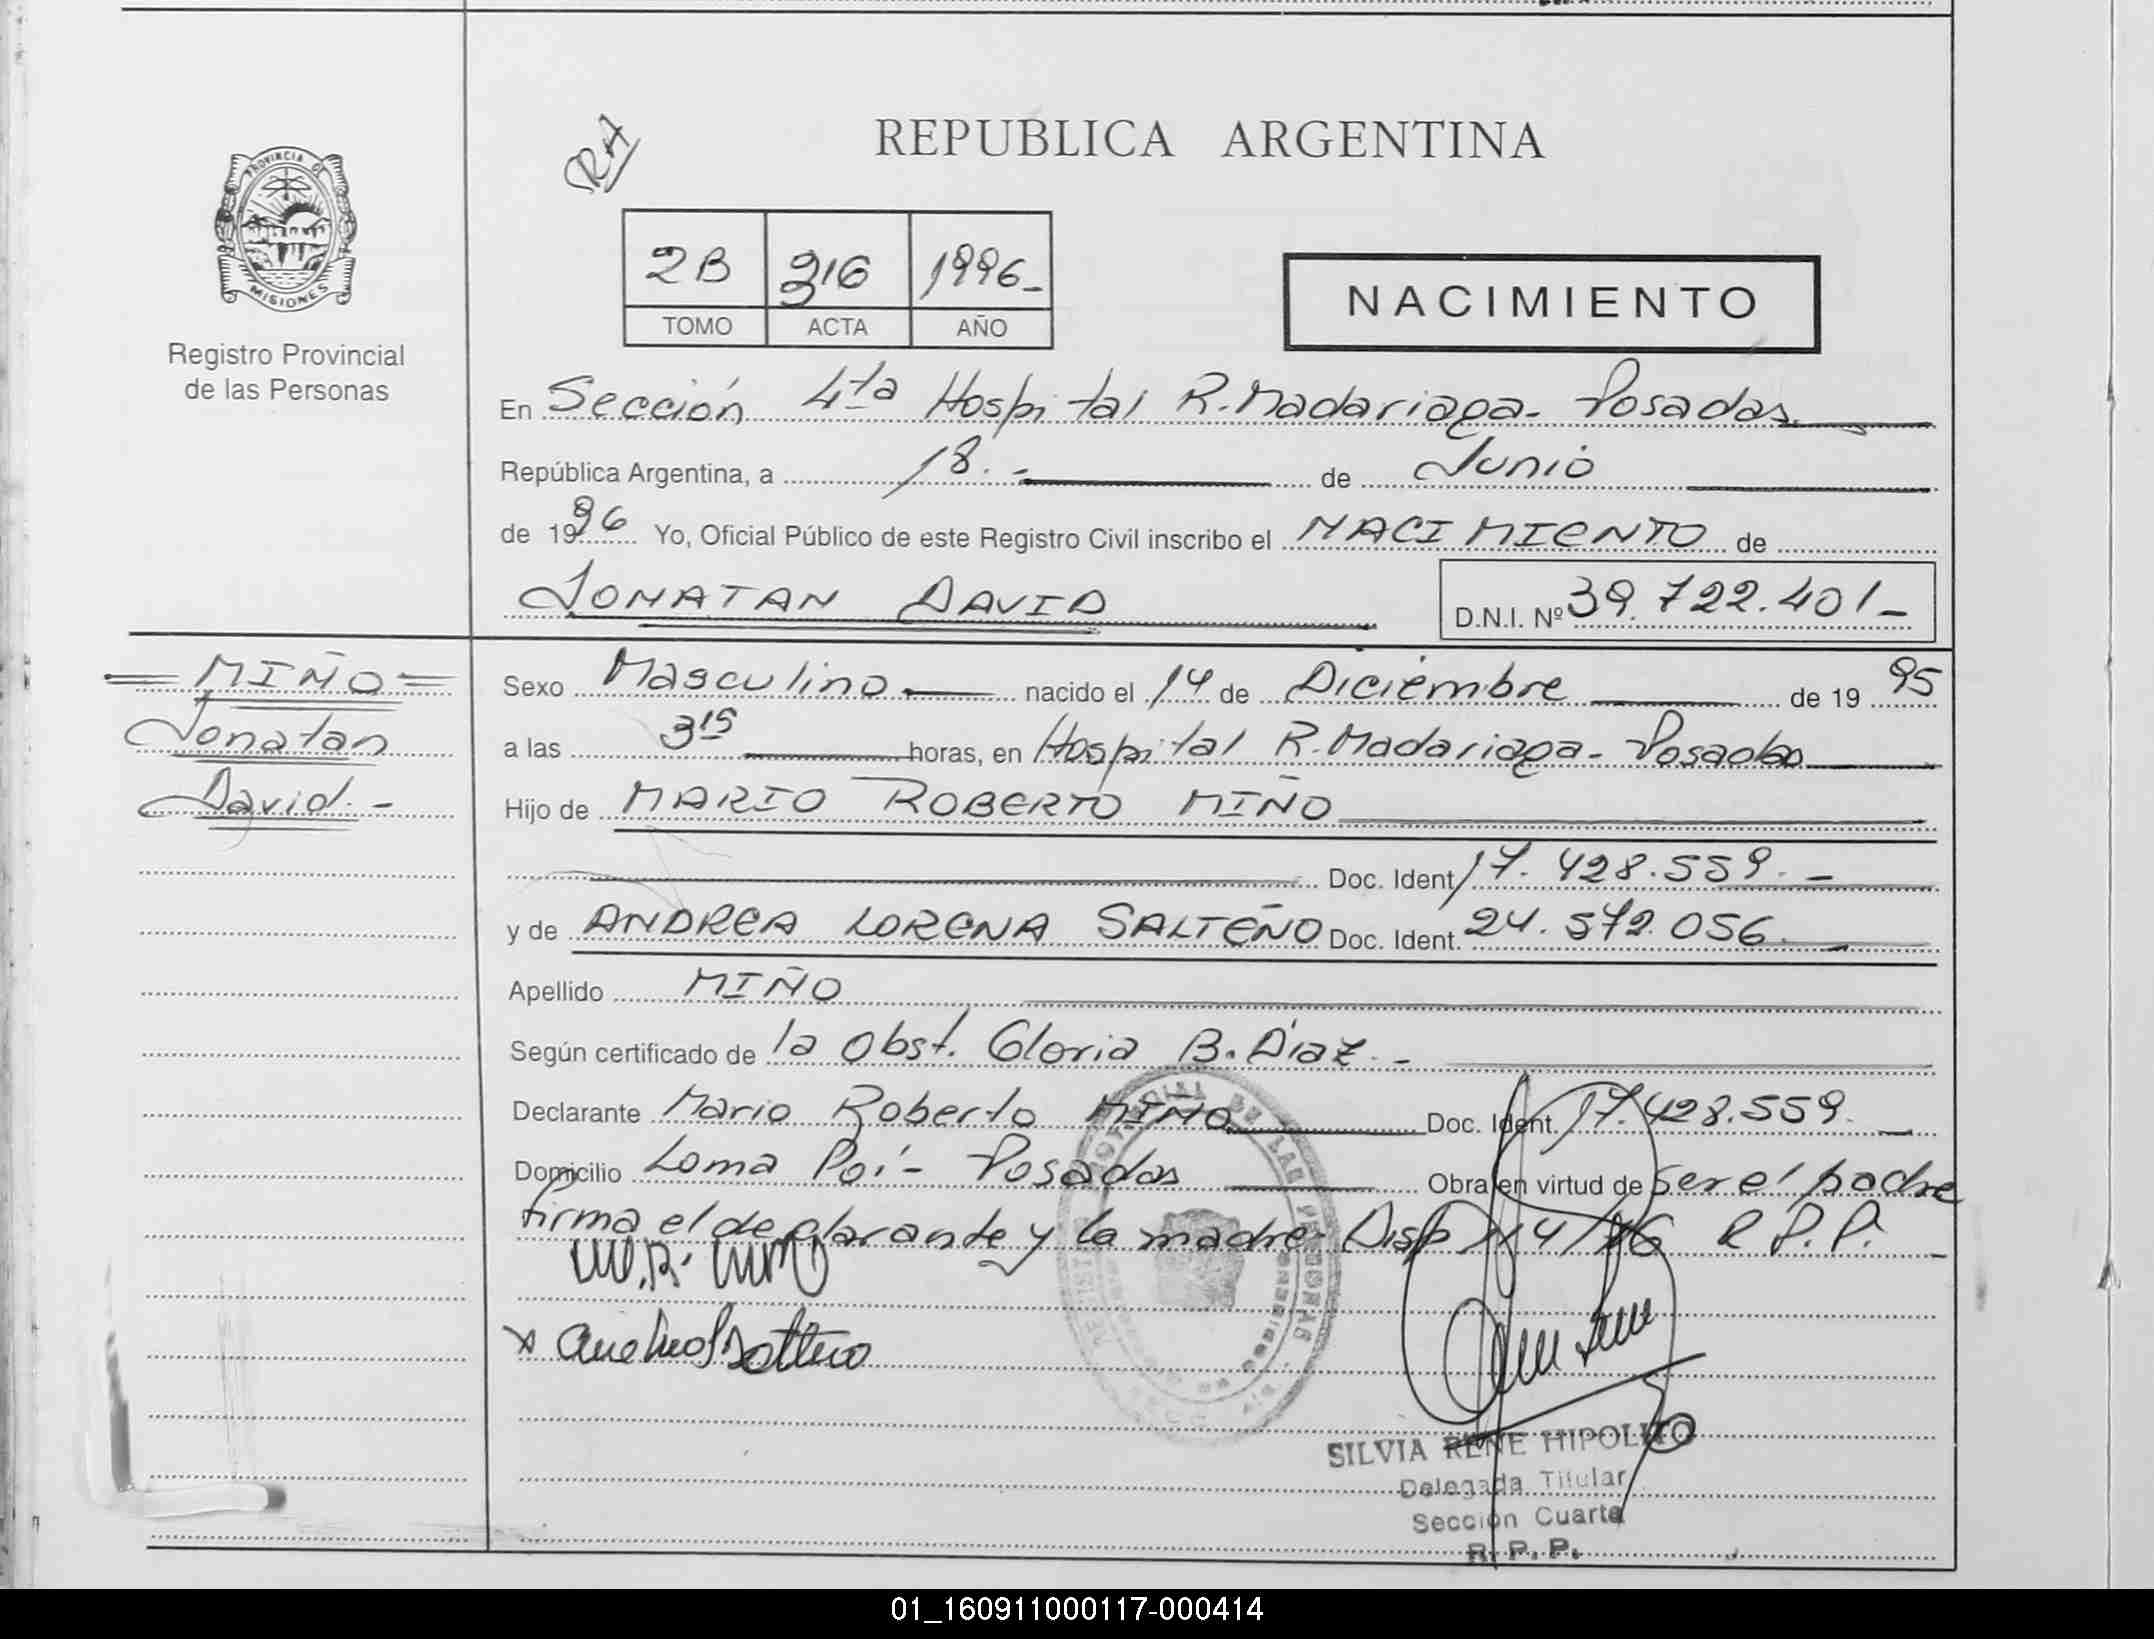 REPUBLICA ARGENTINA
RA
PROVINCIA DE
MISIONES
Registro Provincial
de las Personas
2B 316 1996-
TOMO ACTA AÑO
NACIMIENTO
En Sección 4ta Hospital R. Madariaga- Posadas
República Argentina, a 18.- de Junio
de 1996 Yo, Oficial Público de este Registro Civil inscribo el NACIMIENTO de
JONATAN DAVID
D.N.I. Nº 39.722.401-
= MIÑO =
Jonatan
David.-
Sexo Masculino nacido el 14 de Diciembre de 19 95
a las 3 15 horas, en Hospital R. Madariaga- Posadas
Hijo de MARIO ROBERTO MIÑO
Doc. Ident. 17.428.559.-
y de ANDREA LORENA SALTEÑO Doc. Ident. 24.572.056.-
Apellido MIÑO
Según certificado de la Obst. Gloria B. Díaz.-
Declarante Mario Roberto MIÑO Doc. Ident. 17.428.559.-
Domicilio Loma Poí- Posadas Obra en virtud de ser el padre
firma el declarante y la madre- Disp 114/ R.P.P.-
SILVIA RENE HIPOLITO
Delegada Titular
Sección Cuarta
R. P. P.
01_160911000117-000414